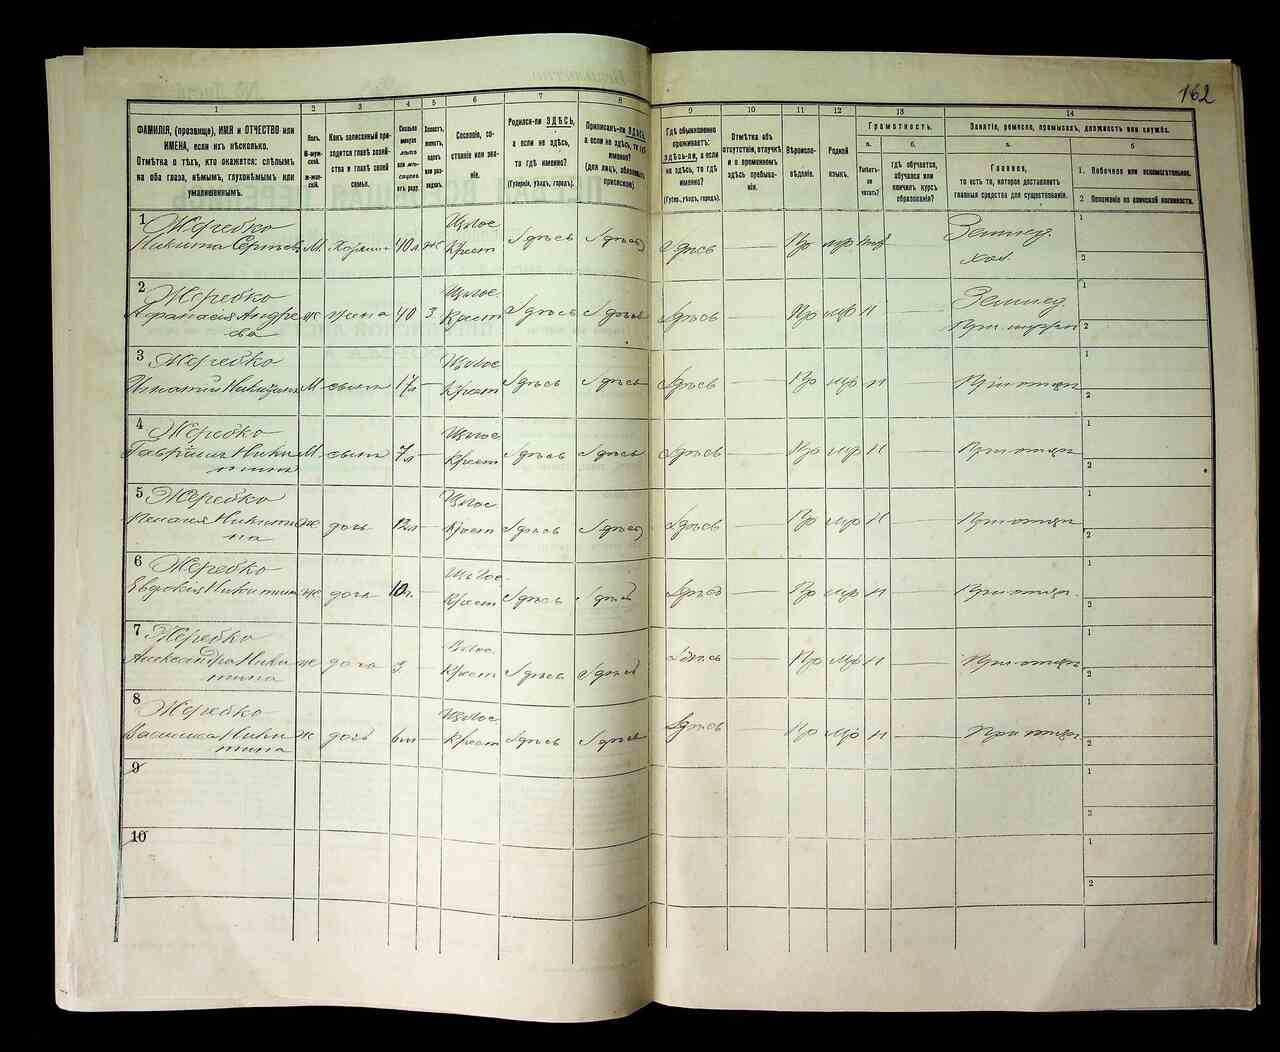 162
1 2 3 4 5 6 7 8 9 10 11 12 13 14
ФАМИЛІЯ, (прозвище), ИМЯ и ОТЧЕСТВО или
ИМЕНА, если ихъ нѣсколько.
Отмѣтка о тѣхъ, кто окажется: слѣпымъ
на оба глаза, нѣмымъ, глухонѣмымъ или
умалишеннымъ.
Полъ.
М-муж-
скій.
Ж-жен-
скій.
Какъ записанный при-
ходится главѣ хозяй-
ства и главѣ своей
семьи.
Сколько
минуло
лѣтъ
или мѣс.
отъ роду.
Холостъ,
женатъ,
вдовъ
или раз-
веденъ.
Сословіе, со-
стояніе или зва-
ніе.
Родился-ли ЗДѢСЬ,
а если не здѣсь,
то гдѣ именно?
(Губернія, уѣздъ, городъ).
Приписанъ-ли ЗДѢСЬ,
а если не здѣсь, то гдѣ
именно?
(для лицъ, обязанныхъ
припискою)
Гдѣ обыкновенно
проживаетъ:
ЗДѢСЬ-ли, а если
не здѣсь, то гдѣ
именно?
(Губ., уѣздъ, городъ).
Отмѣтка объ
отсутствіи, отлучкѣ
и о временномъ
здѣсь пребыва-
ніи.
Вѣроиспо-
вѣданіе.
Родной
языкъ.
Грамотность.
а.
Умѣетъ-
ли
читать?
б.
Гдѣ обучается,
обучался или
кончилъ курсъ
образованія?
Занятіе, ремесло, промыселъ, должность или служба.
а.
Главное,
то есть то, которое доставляетъ
главныя средства для существованія.
б.
1. Побочное или вспомогательное.
2 Положеніе по воинской повинности.
1 Жеребко
Никита М Хозяин 40 л ж Крест Здѣсь Здѣсь Здѣсь — Пр мр
Землед.
хоз.
1
2
2 Жеребко
Афанасія Андре
ева ж жена 40 З. Крест Здѣсь Здѣсь Здѣсь — Пр мр н
Землед.
1
2
3 Жеребко
Игнатій М сынъ 17л — Крест Здѣсь Здѣсь Здѣсь — Пр мр н — При отцѣ
1
2
4 Жеребко
Гавріилъ Ники
тинъ М сынъ 7л — Крест Здѣсь Здѣсь Здѣсь — Пр мр н — При отцѣ
1
2
5 Жеребко
Пелагія Никити
на ж дочь 12л — Крест Здѣсь Здѣсь Здѣсь — Пр мр н — При отцѣ
1
2
6 Жеребко
Евдокія ж дочь 10л. — Крест Здѣсь Здѣсь Здѣсь — Пр мр н — При отцѣ.
1
2
7 Жеребко
Александра Ники
тина ж дочь 3 — Крест Здѣсь Здѣсь Здѣсь — Пр мр н — При отцѣ
1
2
8 Жеребко
Василиса Ники
тина ж дочь — Крест Здѣсь Здѣсь Здѣсь — Пр мр н — При отцѣ
1
2
9
1
2
10
1
2